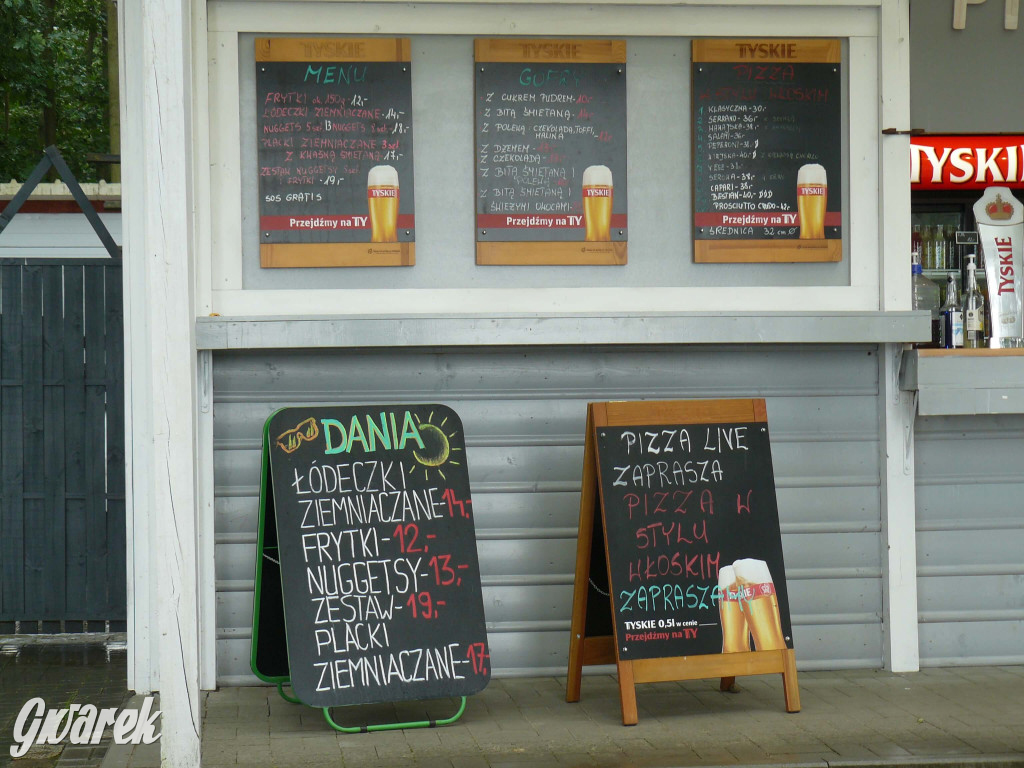 TYSKIE
MENU
FRYTKI ok 150g -12,-
ŁÓDECZKI ZIEMNIACZANE -14,-
NUGGETS 5szt 13 NUGGETS 8szt -18,-
PLACKI ZIEMNIACZANE 3szt
Z KWAŚNĄ ŚMIETANĄ -17,-
ZESTAW NUGGETSY 5szt
i FRYTKI -19,-
SOS GRATIS
TYSKIE
Przejdźmy na TY
TYSKIE
Z CUKREM PUDREM-
Z BITĄ ŚMIETANĄ-
Z POLEWĄ: CZEKOLADA, TOFFI,
MALINA
Z DŻEMEM-
Z CZEKOLADĄ-
Z BITĄ ŚMIETANĄ I
POLEWĄ-
Z BITĄ ŚMIETANĄ I
ŚWIEŻYMI OWOCAMI-
TYSKIE
Przejdźmy na TY
TYSKIE
PIZZA
W STYLU WŁOSKIM
KLASYCZNA-30,-
SERRANO-36,-
HAWAJSKA-38,-
SALAMI-36,-
PEPERONI-
WIEJSKA-40,-
VEGE-38,-
SEROWA-38,-
CAPARI-38,-
BESTIAN-40,-
PROSCIUTTO CRUDO-
ŚREDNICA 32 cm
TYSKIE
Przejdźmy na TY
TYSKIE
TYSKIE
DANIA
ŁÓDECZKI
ZIEMNIACZANE-14,-
FRYTKI-12,-
NUGGETSY-13,-
ZESTAW-19,-
PLACKI
ZIEMNIACZANE-17,-
PIZZA LIVE
ZAPRASZA
PIZZA W
STYLU
WŁOSKIM
ZAPRASZA
TYSKIE 0,5l w cenie
Przejdźmy na TY
Gwarek